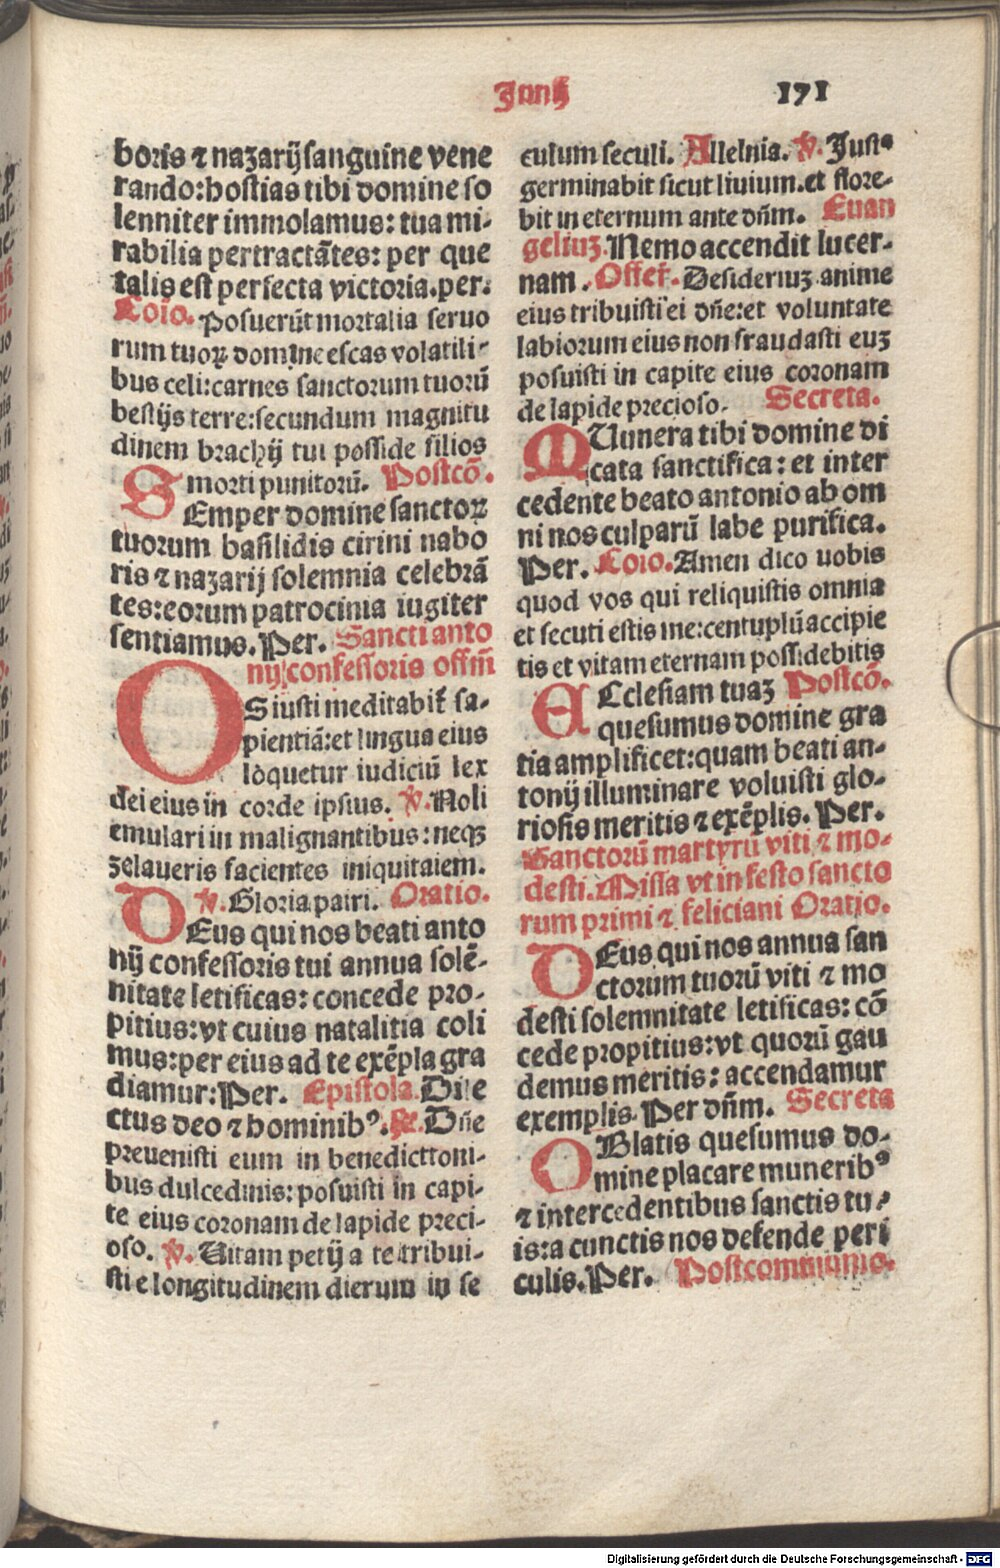 Junij
171
boris ⁊ nazarij sanguine vene
rando: hostias tibi domine so
lenniter immolamus: tua mi-
rabilia pertractātes: per que
talis est perfecta victoria. per.
Coīo. Posuerūt mortalia seruo
rum tuoꝝ domine escas volatili-
bus celi: carnes sanctorum tuorū
bestijs terre: secundum magnitu
dinem brachij tui posside filios
morti punitorū. Postcō.
SEmper domine sanctoꝝ
tuorum basilidis cirini nabo
ris ⁊ nazarij solemnia celebrā
tes: eorum patrocinia iugiter
sentiamus. Per. Sancti anto
nij confessoris offm̄
OS iusti meditabit̄ sa-
pientiā: et lingua eius
loquetur iudiciū lex
dei eius in corde ipsius. ℣. Noli
emulari in malignantibus: neqꝫ
zelaueris facientes iniquitatem.
℣. Gloria patri. Oratio.
DEus qui nos beati anto
nij confessoris tui annua solē-
nitate letificas: concede pro-
pitius: vt cuius natalitia coli
mus: per eius ad te exēpla gra
diamur: Per. Epistola. Dile
ctus deo ⁊ hominibꝰ. ℟. Dn̄e
preuenisti eum in benedictioni-
bus dulcedinis: posuisti in capi-
te eius coronam de lapide preci-
oso. ℣. Uitam petij a te tribui-
sti e longitudinem dierum in se
culum seculi. Allelnia. ℣. Justꝰ
germinabit sicut liuium. et flore-
bit in eternum ante dn̄m. Euan
geliuꝫ. Nemo accendit lucer-
nam. Offer̄. Desideriuꝫ anime
eius tribuisti ei dn̄e: et voluntate
labiorum eius non fraudasti euꝫ
posuisti in capite eius coronam
de lapide precioso. Secreta.
MUunera tibi domine di
cata sanctifica: et inter
cedente beato antonio ab om
ni nos culparū labe purifica.
Per. Coīo. Amen dico uobis
quod vos qui reliquistis omnia
et secuti estis me: centuplū accipie
tis et vitam eternam possidebitis
EEclesiam tuaꝫ Postcō.
quesumus domine gra
tia amplificet: quam beati an-
tonij illuminare voluisti glo-
riosis meritis ⁊ exēplis. Per.
Sanctorū martyrū viti ⁊ mo-
desti. Missa vt in festo sancto
rum primi ⁊ feliciani Oratio.
DEus qui nos annua san
ctorum tuorū viti ⁊ mo
desti solemnitate letificas: cō
cede propitius: vt quorū gau
demus meritis: accendamur
exemplis. Per dn̄m. Secreta
OBlatis quesumus do-
mine placare muneribꝰ
⁊ intercedentibus sanctis tu-
is: a cunctis nos defende peri
culis. Per. Postcommunio.
Digitalisierung gefördert durch die Deutsche Forschungsgemeinschaft - DFG